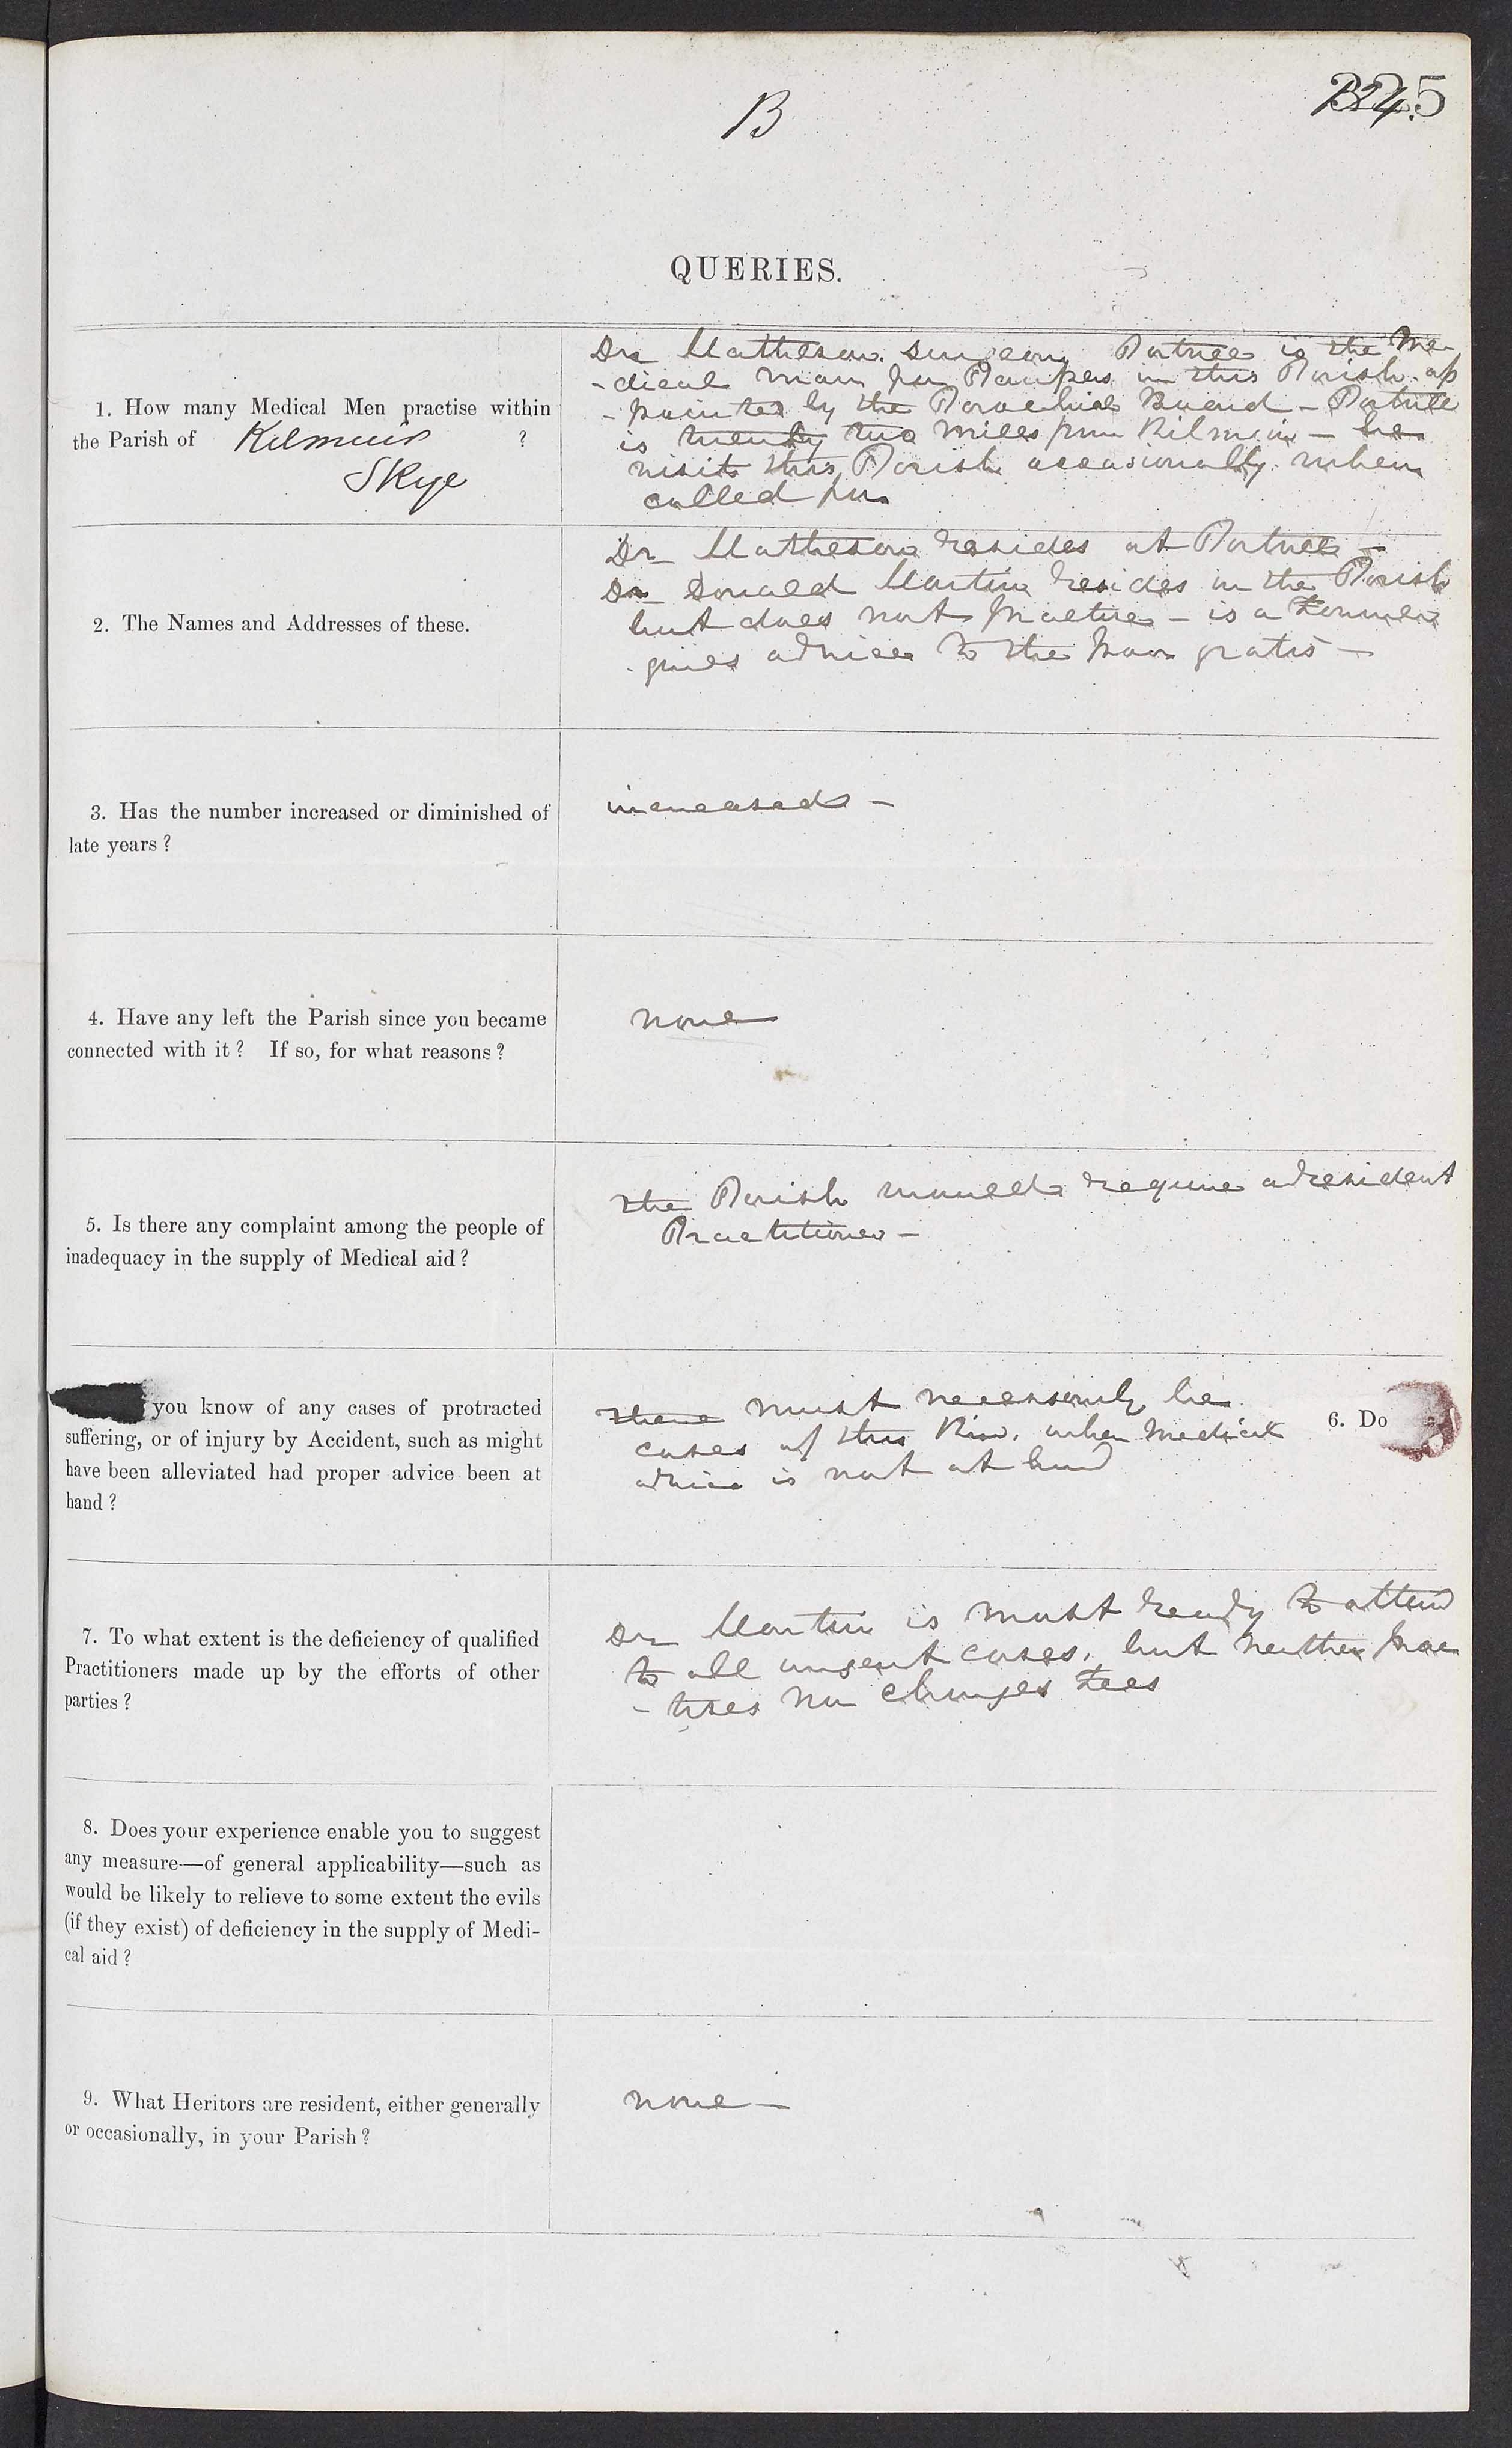 B
QUERIES.
1. How many Medical Men practise within
the Parish of Kilmuir ?
Skye
Dr Matheson. Surgeon, Portree is the Me
-dical man for Paupers in this Parish. ap
-pointed by the Parochial Board - Portree
is twenty two miles from Kilmuir - he
visits this Parish occasionally when
called for
2. The Names and Addresses of these.
Dr Matheson resides at Portree -
Dr Donald Martin resides in the Parish
but does not practice - is a Farmer
gives advice to the poor gratis -
3. Has the number increased or diminished of
late years ?
increased -
4. Have any left the Parish since you became
connected with it ? If so, for what reasons ?
none
5. Is there any complaint among the people of
inadequacy in the supply of Medical aid ?
The Parish would require a resident
Practitioner -
6. Do
you know of any cases of protracted
suffering, or of injury by Accident, such as might
have been alleviated had proper advice been at
hand ?
There must necessarily be
cases of this kind, when Medical
advice is not at hand
7. To what extent is the deficiency of qualified
Practitioners made up by the efforts of other
parties ?
Dr Martin is most ready to attend
to all urgent cases, but neither prac
-tises nor charges Fees
8. Does your experience enable you to suggest
any measure—of general applicability—such as
would be likely to relieve to some extent the evils
(if they exist) of deficiency in the supply of Medi-
cal aid ?
9. What Heritors are resident, either generally
or occasionally, in your Parish ?
none -